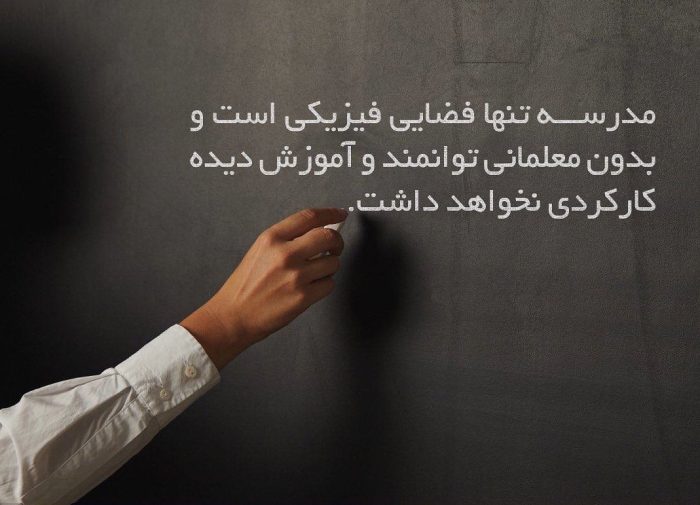 مدرســـه تنها فضایی فیزیکی است و
بدون معلمانی توانمند و آموزش دیده
کارکردی نخواهد داشت.